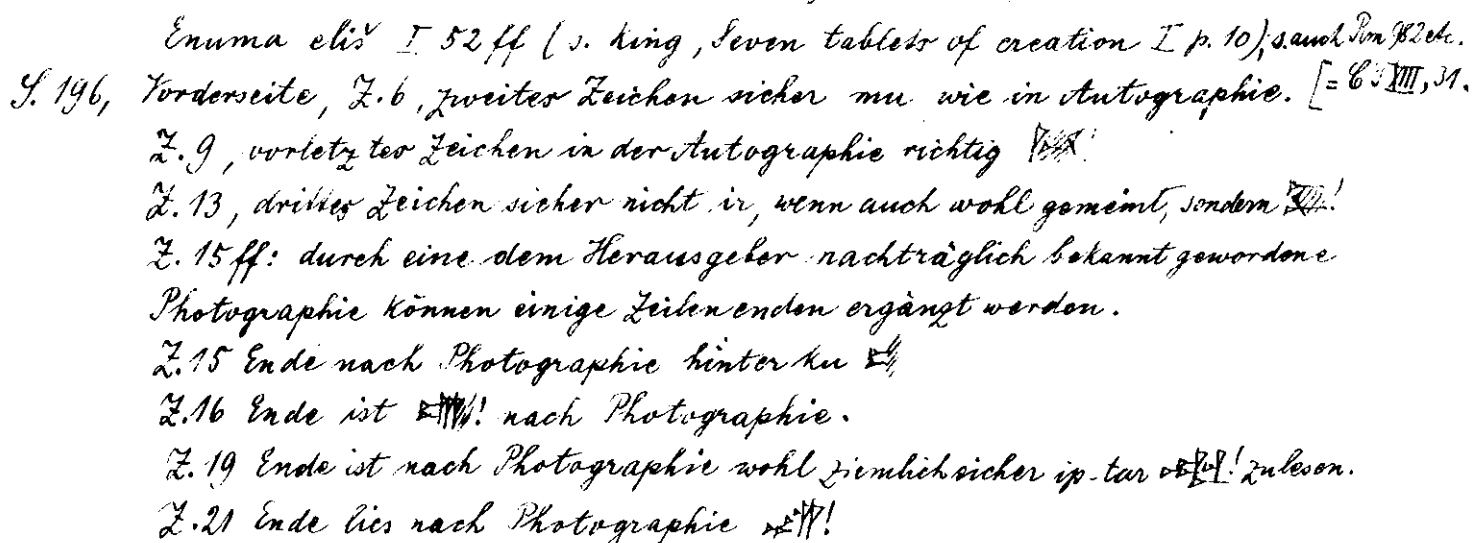 Enuma eliš I 52 ff (s. King, Seven tablets of creation I p. 10), s. auch Rm 982 etc.
S. 196, Vorderseite, Z. 6, zweites Zeichen sicher mu wie in Autographie. [= XIII, 31.
Z. 9, vorletztes Zeichen in der Autographie richtig
Z. 13, drittes Zeichen sicher nicht ir, wenn auch wohl gemeint, sondern !
Z. 15 ff: durch eine dem Herausgeber nachträglich bekannt gewordene
Photographie können einige Zeilenenden ergänzt werden.
Z. 15 Ende nach Photographie hinter ku
Z. 16 Ende ist ! nach Photographie.
Z. 19 Ende ist nach Photographie wohl ziemlich sicher ip-tar ! zu lesen.
Z. 21 Ende lies nach Photographie !